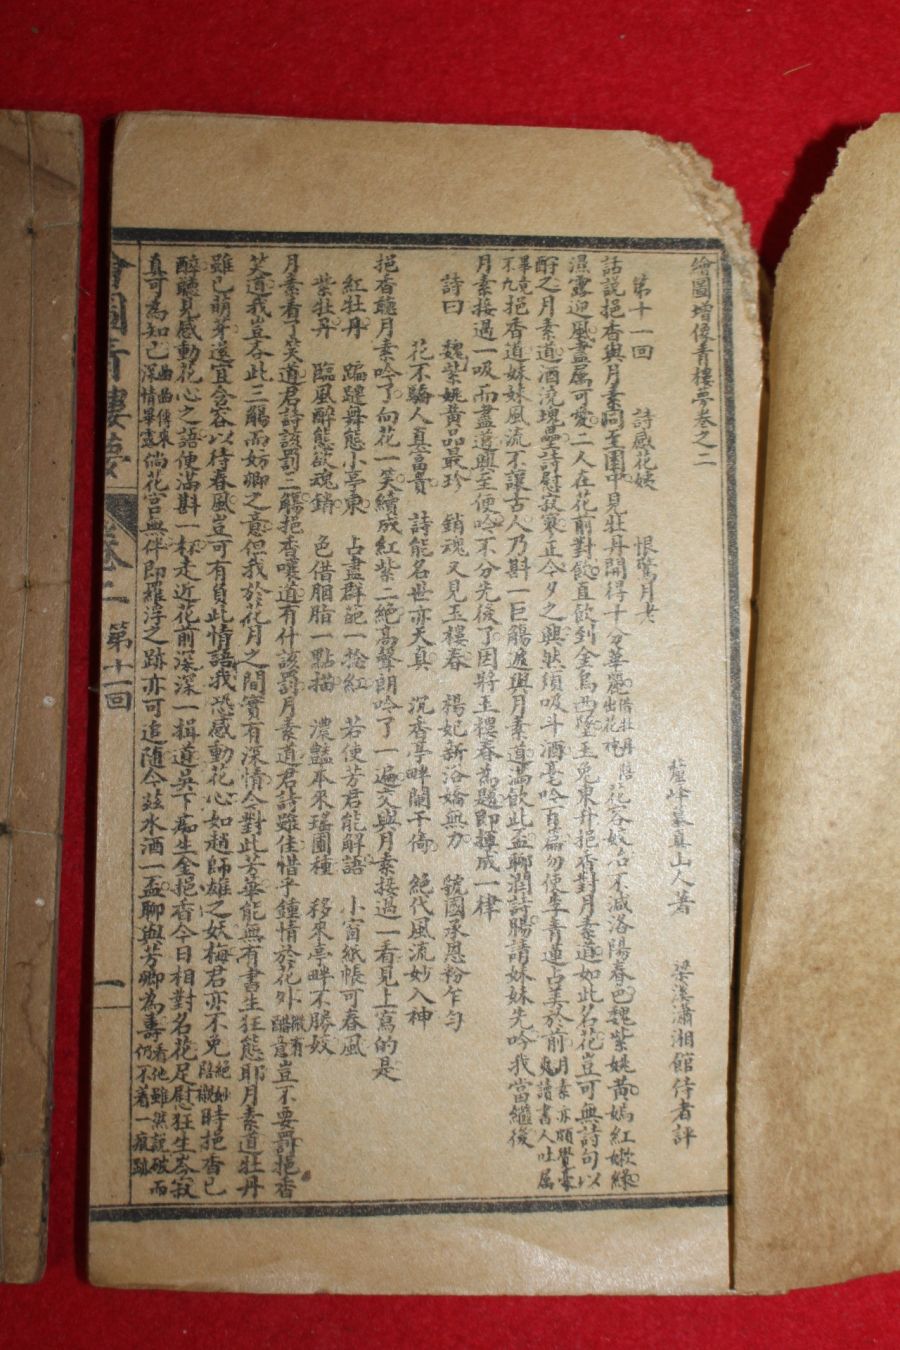 繪圖增像青樓夢卷之二
釐峰慕真山人著 梁溪瀟湘館侍者評
第十一回 詩感花姨 恨驚月老
話說挹香與月素同至園中見牡丹開得十分華麗借牡丹陪出花神花容妓名不減洛陽春色魏紫姚黃嫣紅嫩綠
濕露迎風盡屬可愛二人在花前對飲直飲到金烏西墜玉兔東升挹香對月素道如此名花豈可無詩句以
酹之月素道酒澆塊壘詩慰寂寥正今夕之興然須吸斗酒亳吟百篇勿使李青蓮占美於前月素亦頗豪爽讀書人吐屬
畢竟不凡挹香道妹妹風流不讓古人乃斟一巨觴遞與月素道滿飲此盃聊潤詩腸請妹妹先吟我當繼後
月素接過一吸而盡道興至便吟不分先後了因將玉樓春為題即揮成一律
詩曰 魏紫姚黃品最珍 銷魂又見玉樓春 楊妃新浴嬌無力 虢國承恩粉乍勻
花不驕人真富貴 詩能名世亦天真 沉香亭畔闌干倚 絕代風流妙入神
挹香聽月素吟了向花一笑續成紅紫二絕高聲朗吟了一遍交與月素接過一看見上寫的是
紅牡丹 蹁躚舞態小亭東 占盡群葩一捻紅 若使芳君能解語 小窗紙帳可春風
紫牡丹 臨風醉態欲魂銷 色借胭脂一點描 濃豔本來瑤圃種 移來亭畔不勝妓
月素看了笑道君詩該罰三觴挹香嚷道有什該罰月素道君詩雖佳惜乎鍾情於花外微有醋意豈不要罰挹香
笑道我豈吝此三觴而妨卿之意但我於花月之間實有深情今對此芳華能無有書生狂態耶月素道牡丹
雖已萌芽還宜含容以待春風豈可有負此情語我恐感動花心如趙師雄之妖梅君亦不免絕妙陪襯時挹香已
醉聽見感動花心之語便滿斟一杯走近花前深深一揖道吳下痴生金挹香今日相對名花足慰狂生岑寂
真可為知己曲曲傳來深情畢露倘花宮無伴即羅浮之跡亦可追隨今茲水酒一盃聊與芳卿為壽看他雖然說破而仍不著一痕跡
繪圖青樓夢 卷二 第十一回 一